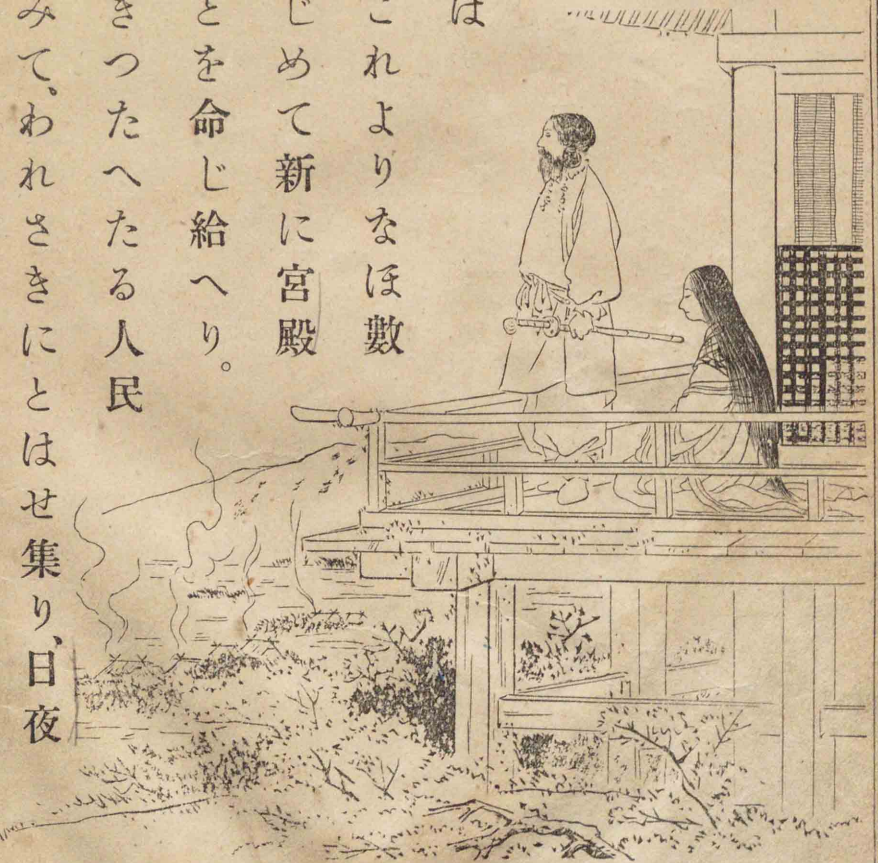 は
これよりなほ數
じめて新に宮殿
とを命じ給へり。
きつたへたる人民
みて、われさきにとはせ集り、日夜